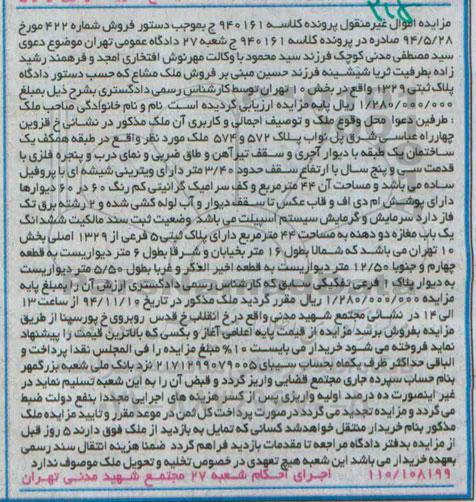 مزایده اموال غیرمنقول پرونده کلاسه ۹۴۰۱۶۱ ج بموجب دستور فروش شماره ۴۲۲ مورخ
۹۴/۵/۲۸ صادره در پرونده کلاسه ۹۴۰۱۶۱ ج شعبه ۲۷ دادگاه عمومی تهران موضوع دعوی
سید مصطفی مدنی کوچک فرزند سید محمود با وکالت مهرنوش افتخاری امجد و فرهمند رشید
زاده بطرفیت ثریا شیشینه فرزند حسین مبنی بر فروش ملک مشاع که حسب دستور دادگاه
پلاک ثبتی ۱۳۲۹ واقع در بخش ۱۰ تهران توسط کارشناس رسمی دادگستری بشرح ذیل بمبلغ
۱/۲۸۰/۰۰۰/۰۰۰ ریال پایه مزایده ارزیابی گردیده است. نام و نام خانوادگی صاحب ملک
: طرفین دعوا محل وقوع ملک و توصیف اجمالی و کاربری آن ملک مذکور در نشانی خ قزوین
چهارراه عباسی شرق پل نواب پلاک ۵۷۲ و ۵۷۴ ملک مورد نظر واقع در طبقه همکف یک
ساختمان یک طبقه با دیوار آجری و سقف تیرآهن و طاق ضربی و نمای درب و پنجره فلزی با
قدمت سی و پنج سال با ارتفاع سقف حدود ۳/۴۰ متر دارای ویترینی شیشه ای با پروفیل
ساده می باشد و مساحت آن ۴۴ مترمربع و کف سرامیک گرانیتی کم رنگ ۶۰ در ۶۰ دیوارها
دارای پوشش ام دی اف و قاب عکس تا سقف دیوار و آب لوله کشی شده و ۲ رشته برق تک
فاز دارد سرمایش و گرمایش سیستم اسپیلت می باشد. وضعیت ثبت سند مالکیت ششدانگ
یک باب مغازه دو دهنه به مساحت ۴۴ مترمربع دارای پلاک ثبتی ۵ فرعی از ۱۳۲۹ اصلی بخش
۱۰ تهران می باشد که شمالا بطول ۱۶ متر بخیابان و شرقا بطول ۶ متر دیواریست به قطعه
چهارم و جنوبا ۱۲/۵۰ متر دیواریست به قطعه اخیر الذکر و غربا بطول ۵/۵۰ متر دیواریست
به دیوار پلاک ۱ فرعی تفکیکی سابق که کارشناس رسمی دادگستری ارزش آن را بمبلغ پایه
مزایده ۱/۲۸۰/۰۰۰/۰۰۰ ریال مقرر گردید ملک مذکور در تاریخ ۹۴/۱۱/۱۰ از ساعت ۱۳
الی ۱۴ در نشانی مجتمع شهید مدنی واقع در خ انقلاب خ قدس روبروی خ پورسینا از طریق
مزایده بفروش برسد مزایده از قیمت پایه اعلامی آغاز و بکسی که بالاترین قیمت را پیشنهاد
نماید فروخته می شود خریدار می بایست ۱۰% مبلغ مزایده را فی المجلس نقدا پرداخت و
الباقی حداکثر ظرف یکماه بحساب سیبای ۲۱۷۱۲۹۹۰۷۹۰۰۵ نزد بانک ملی شعبه بزرگمهر
بنام حساب سپرده جاری مجتمع قضایی واریز گردد و قبض آن را به این شعبه تسلیم نماید در
غیر اینصورت ده درصد اولیه واریزی پس از کسر هزینه های اجرایی مجددا بنفع دولت ضبط
می گردد و مزایده تجدید می گردد درصورت پرداخت کل ثمن در موعد مقرر و تایید مزایده ملک
مذکور بنام خریدار منتقل خواهدشد کسانی که تمایل به بازدید از ملک فوق دارند ۵ روز قبل
از مزایده بدفتر دادگاه مراجعه تا مقدمات بازدید فراهم گردد ضمنا هزینه انتقال سند رسمی
بعهده خریدار می باشد این شعبه هیچ تعهدی در خصوص تخلیه و تحویل ملک موصوف ندارد
۱۱۰/۱۰۸۱۹۹ اجرای احکام شعبه ۲۷ مجتمع شهید مدنی تهران